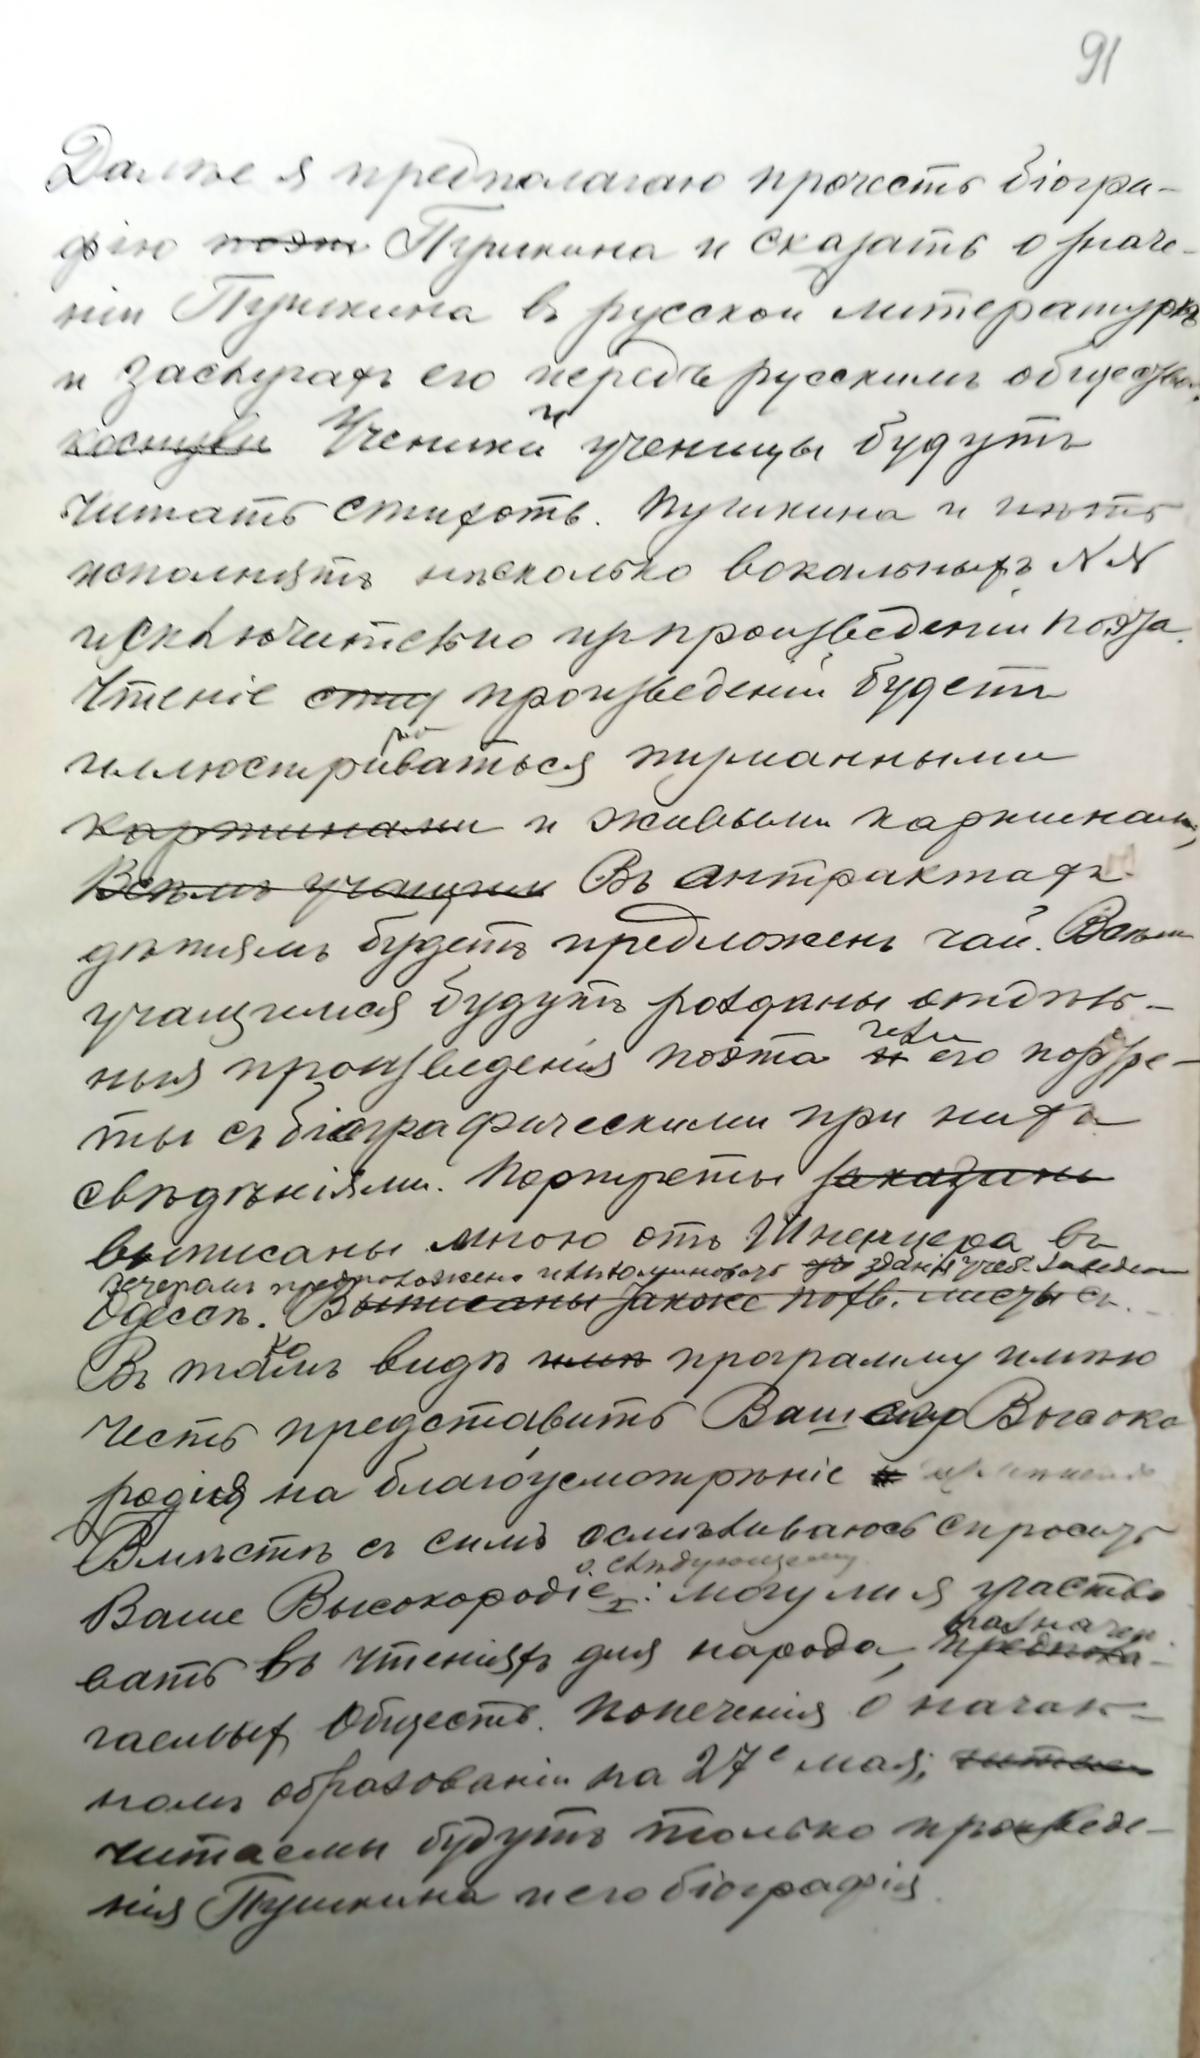 91
Далѣе я предполагаю прочесть біогра-
фію поэт Пушкина и сказать о значе-
ніи Пушкина въ русской литературѣ
и заслугахъ его передъ русскимъ обществом,
Ученики и ученицы будутъ
читать стихотв. Пушкина и
исполнятъ нѣсколько вокальныхъ №№
исключительно изъ произведеній поэта.
Чтеніе стих произведеній будетъ
иллюстрироваться туманными
картинами и живыми картинами,
Всѣмъ учащим Въ антрактахъ
дѣтямъ будетъ предложенъ чай. Всѣмъ
учащимся будутъ розданы отдѣль-
ныя произведенія поэта или его портре-
ты съ біографическими при нихъ
свѣдѣніями. Портреты заказаны
выписаны мною отъ Шпенцера въ
вечеромъ предположено иллюминовать зданія учеб. заведен
Одессѣ. Выписаны также похв. листы съ
Въ такомъ видѣ программу имѣю
честь представить Вашему Высоко
родія на благоусмотрѣніе
Вмѣстѣ съ симъ осмѣливаюсь спросить
о слѣдующему
Ваше Высокородіе: могу ли я участво
вать въ чтеніяхъ для народа, назначен
предпола-
гаемых Обществ. попеченія о началь-
номъ образованіи на 27е мая;
читаемы будутъ только произведе-
нія Пушкина и его біографія.